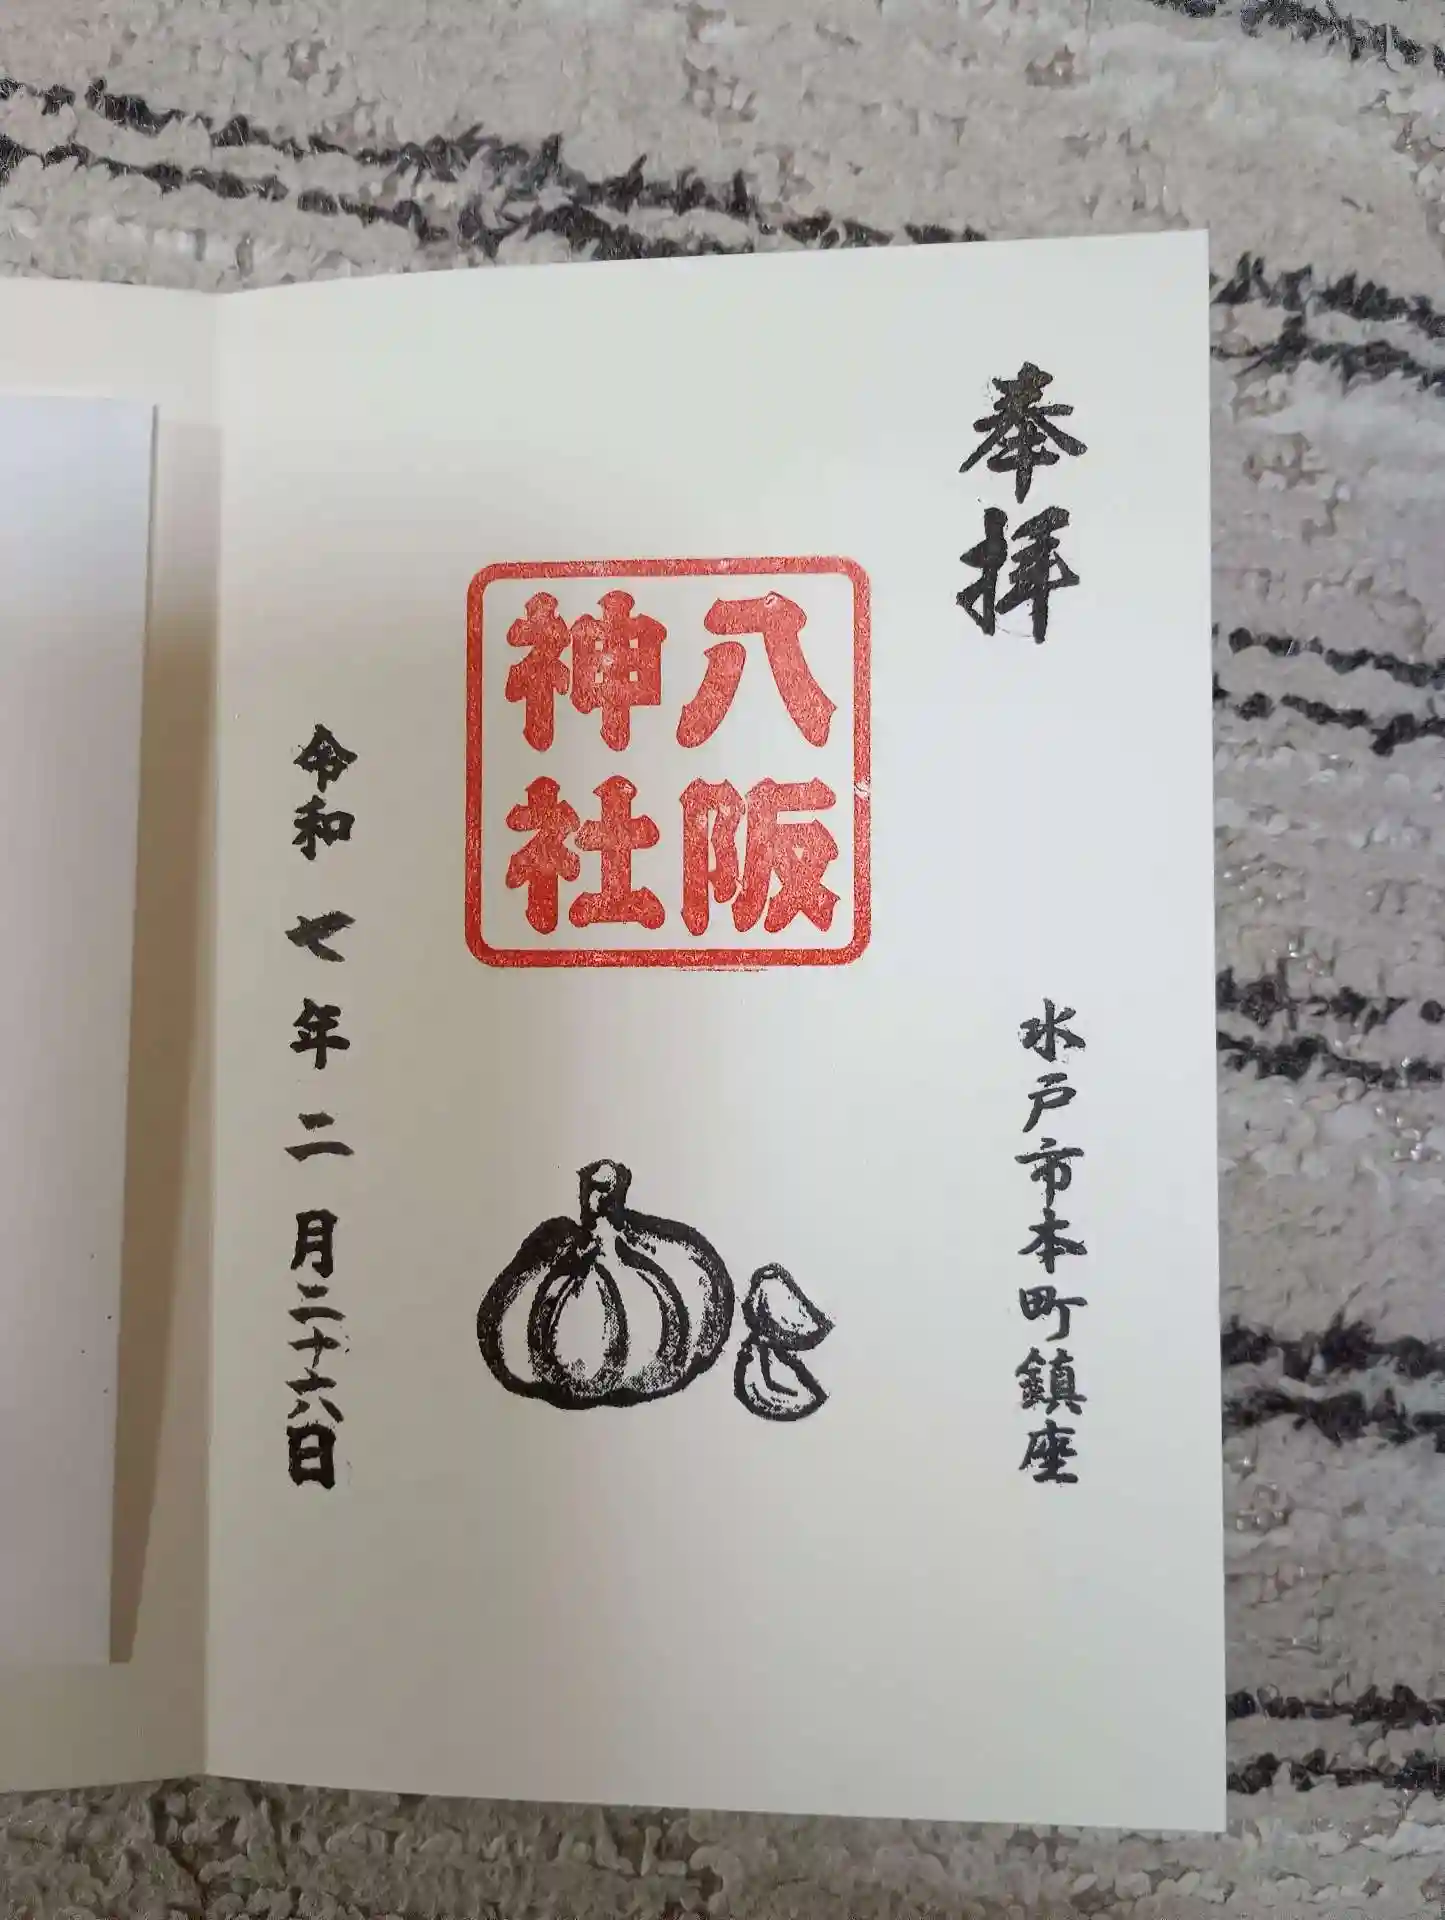 奉拝
水戸市本町鎮座
八阪
神社
令和七年二月二十六日